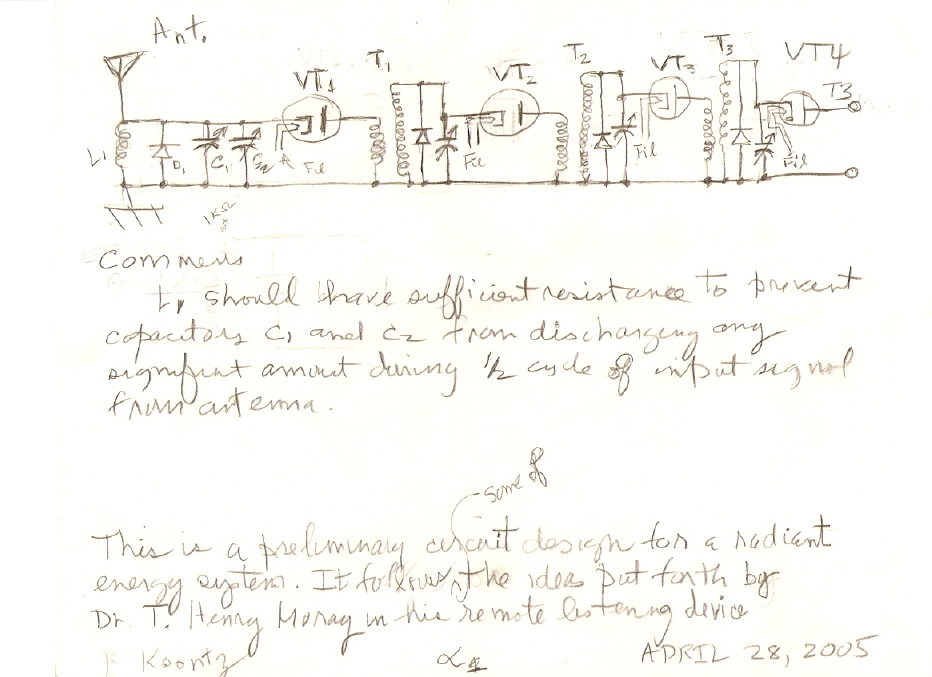 Ant.
VT1 T1 VT2 T2 VT3 T3 VT4
T3
L1 D1 C1 C2 Fil Fil Fil Fil
1KΩ
Comments
L1 should have sufficient resistance to prevent
capacitors C1 and C2 from discharging any
significant amount during 1/2 cycle of input signal
from antenna.
some of
This is a preliminary circuit design for a radiant
energy system. It follows the ideas put forth by
Dr. T. Henry Moray in his remote listening device
R Koontz
APRIL 28, 2005